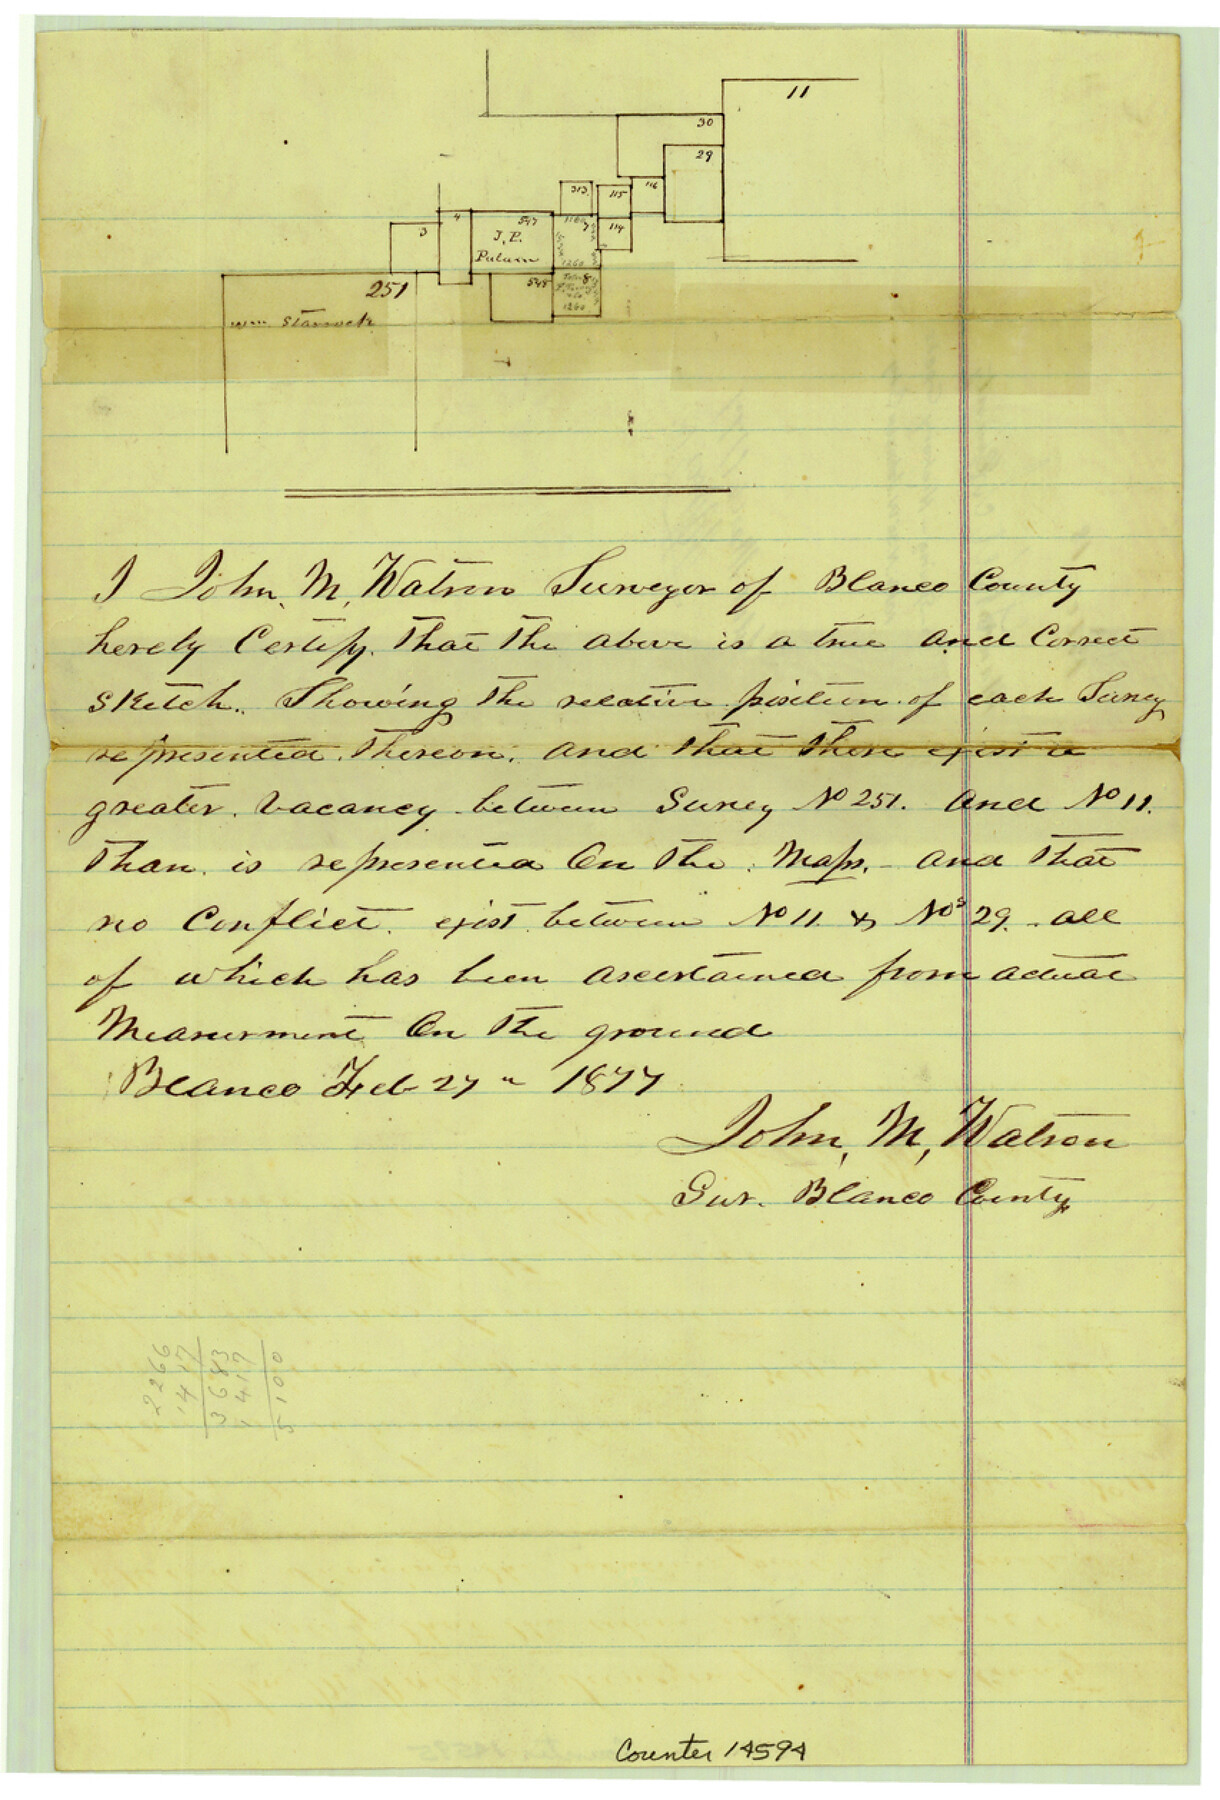 11
30
29
313
115
116
4
547
7
114
3
J. P.
1260
251
548
8
1260
Wm Starrock
I John, M, Watson Surveyor of Blanco County
hereby Certify. That the above is a true and Correct
Sketch. Showing the relative position of each Survey
represented Thereon. and that there exist a
greater. Vacancy between Survey No 251. and No 11.
Than. is represented On the Maps. - and that
no Conflict. exist between No 11. & Nos 29. all
of which has been ascertained from actual
Measurment On the ground
Blanco Feb 27" 1877
John, M, Watson
Sur. Blanco County
2266
1417
3683
1417
5100
Counter 14594